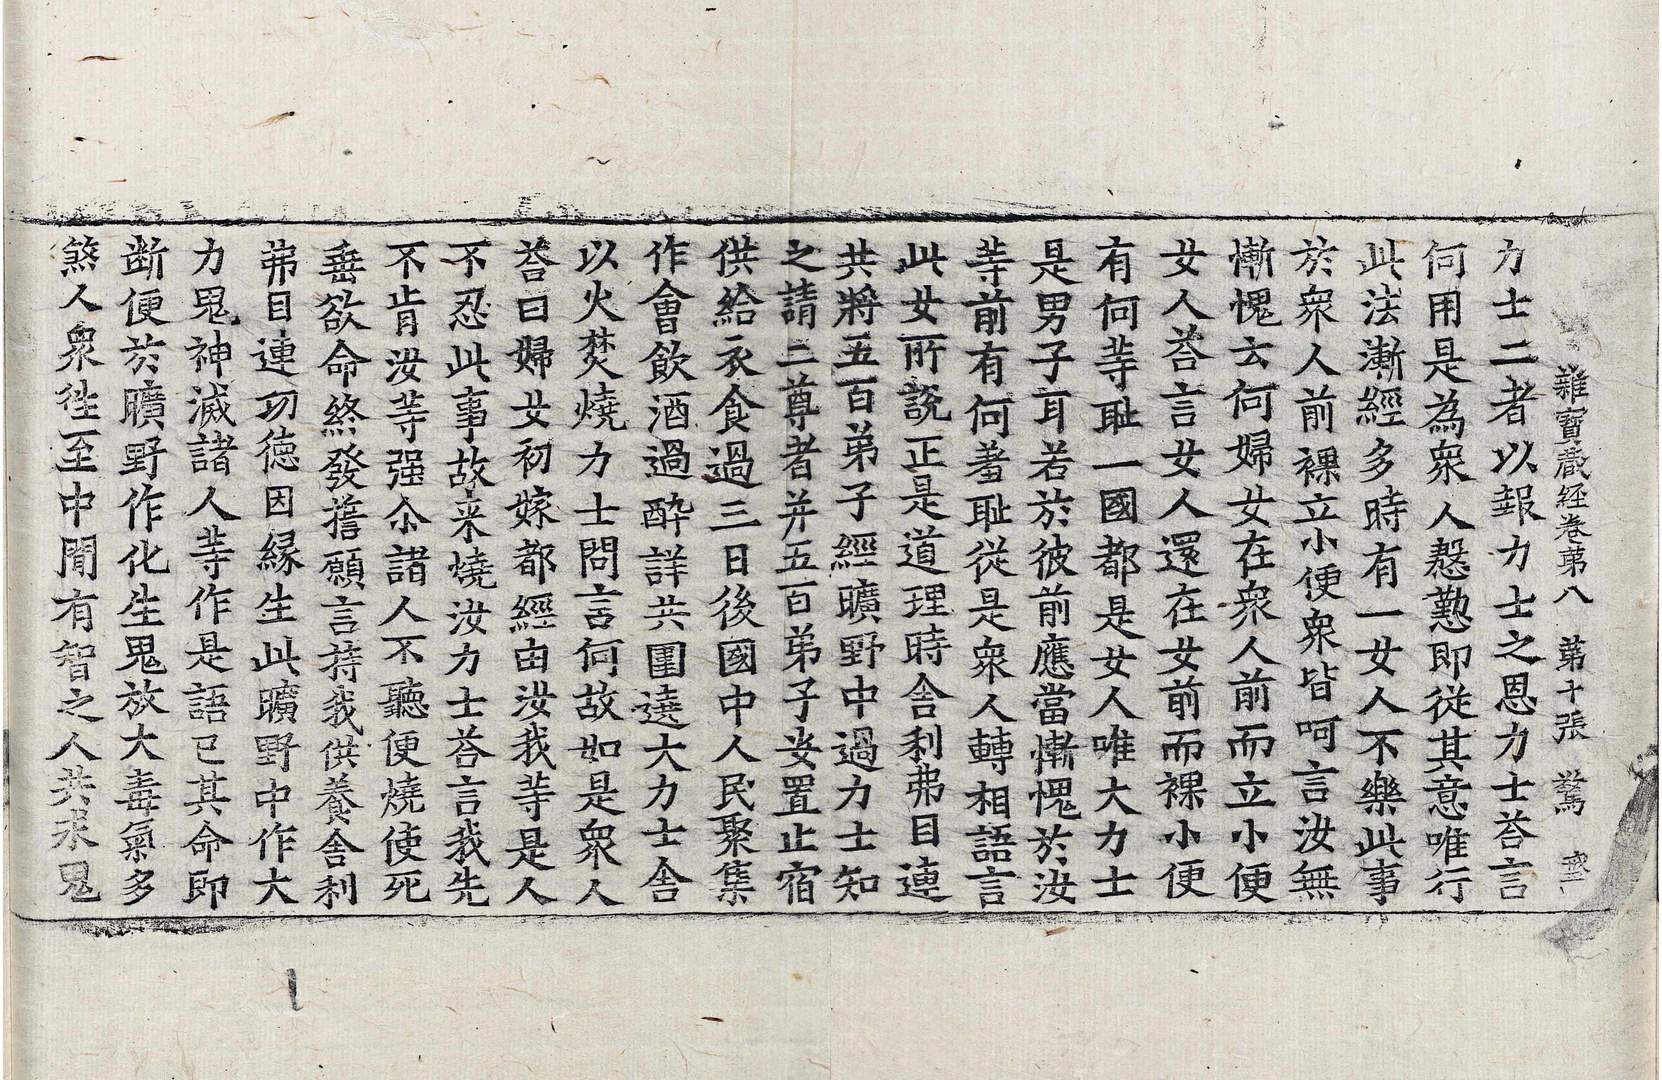 雜寶蔵経卷苐八 苐十張 驚
力士二者以報力士之恩力士荅言
何用是為衆人慇懃即從其意唯行
此法漸經多時有一女人不樂此事
於衆人前裸立小便衆皆呵言汝無
慚愧云何婦女在衆人前而立小便
女人荅言女人還在女前而裸小便
有何等耻一國都是女人唯大力士
是男子耳若於彼前應當慚愧於汝
等前有何羞耻從是衆人轉相語言
此女所說正是道理時舍利弗目連
共將五百弟子經曠野中過力士知
之請二尊者并五百弟子安置止宿
供給衣食過三日後國中人民聚集
作會飲酒過醉詳共圍遶大力士舍
以火焚燒力士問言何故如是衆人
荅曰婦女初嫁都經由汝我等是人
不忍此事故来燒汝力士荅言我先
不肯汝等强尒諸人不聽便燒使死
垂欲命終發誓願言持我供養舍利
弗目連功德因緣生此曠野中作大
力鬼神滅諸人等作是語已其命即
断便於曠野作化生鬼放大毒氣多
煞人衆徃至中間有智之人共求鬼